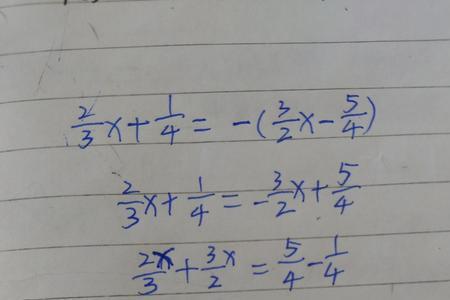 2/3 x + 1/4 = -(3/2 x - 5/4)
2/3 x + 1/4 = -3/2 x + 5/4
2x/3 + 3x/2 = 5/4 - 1/4